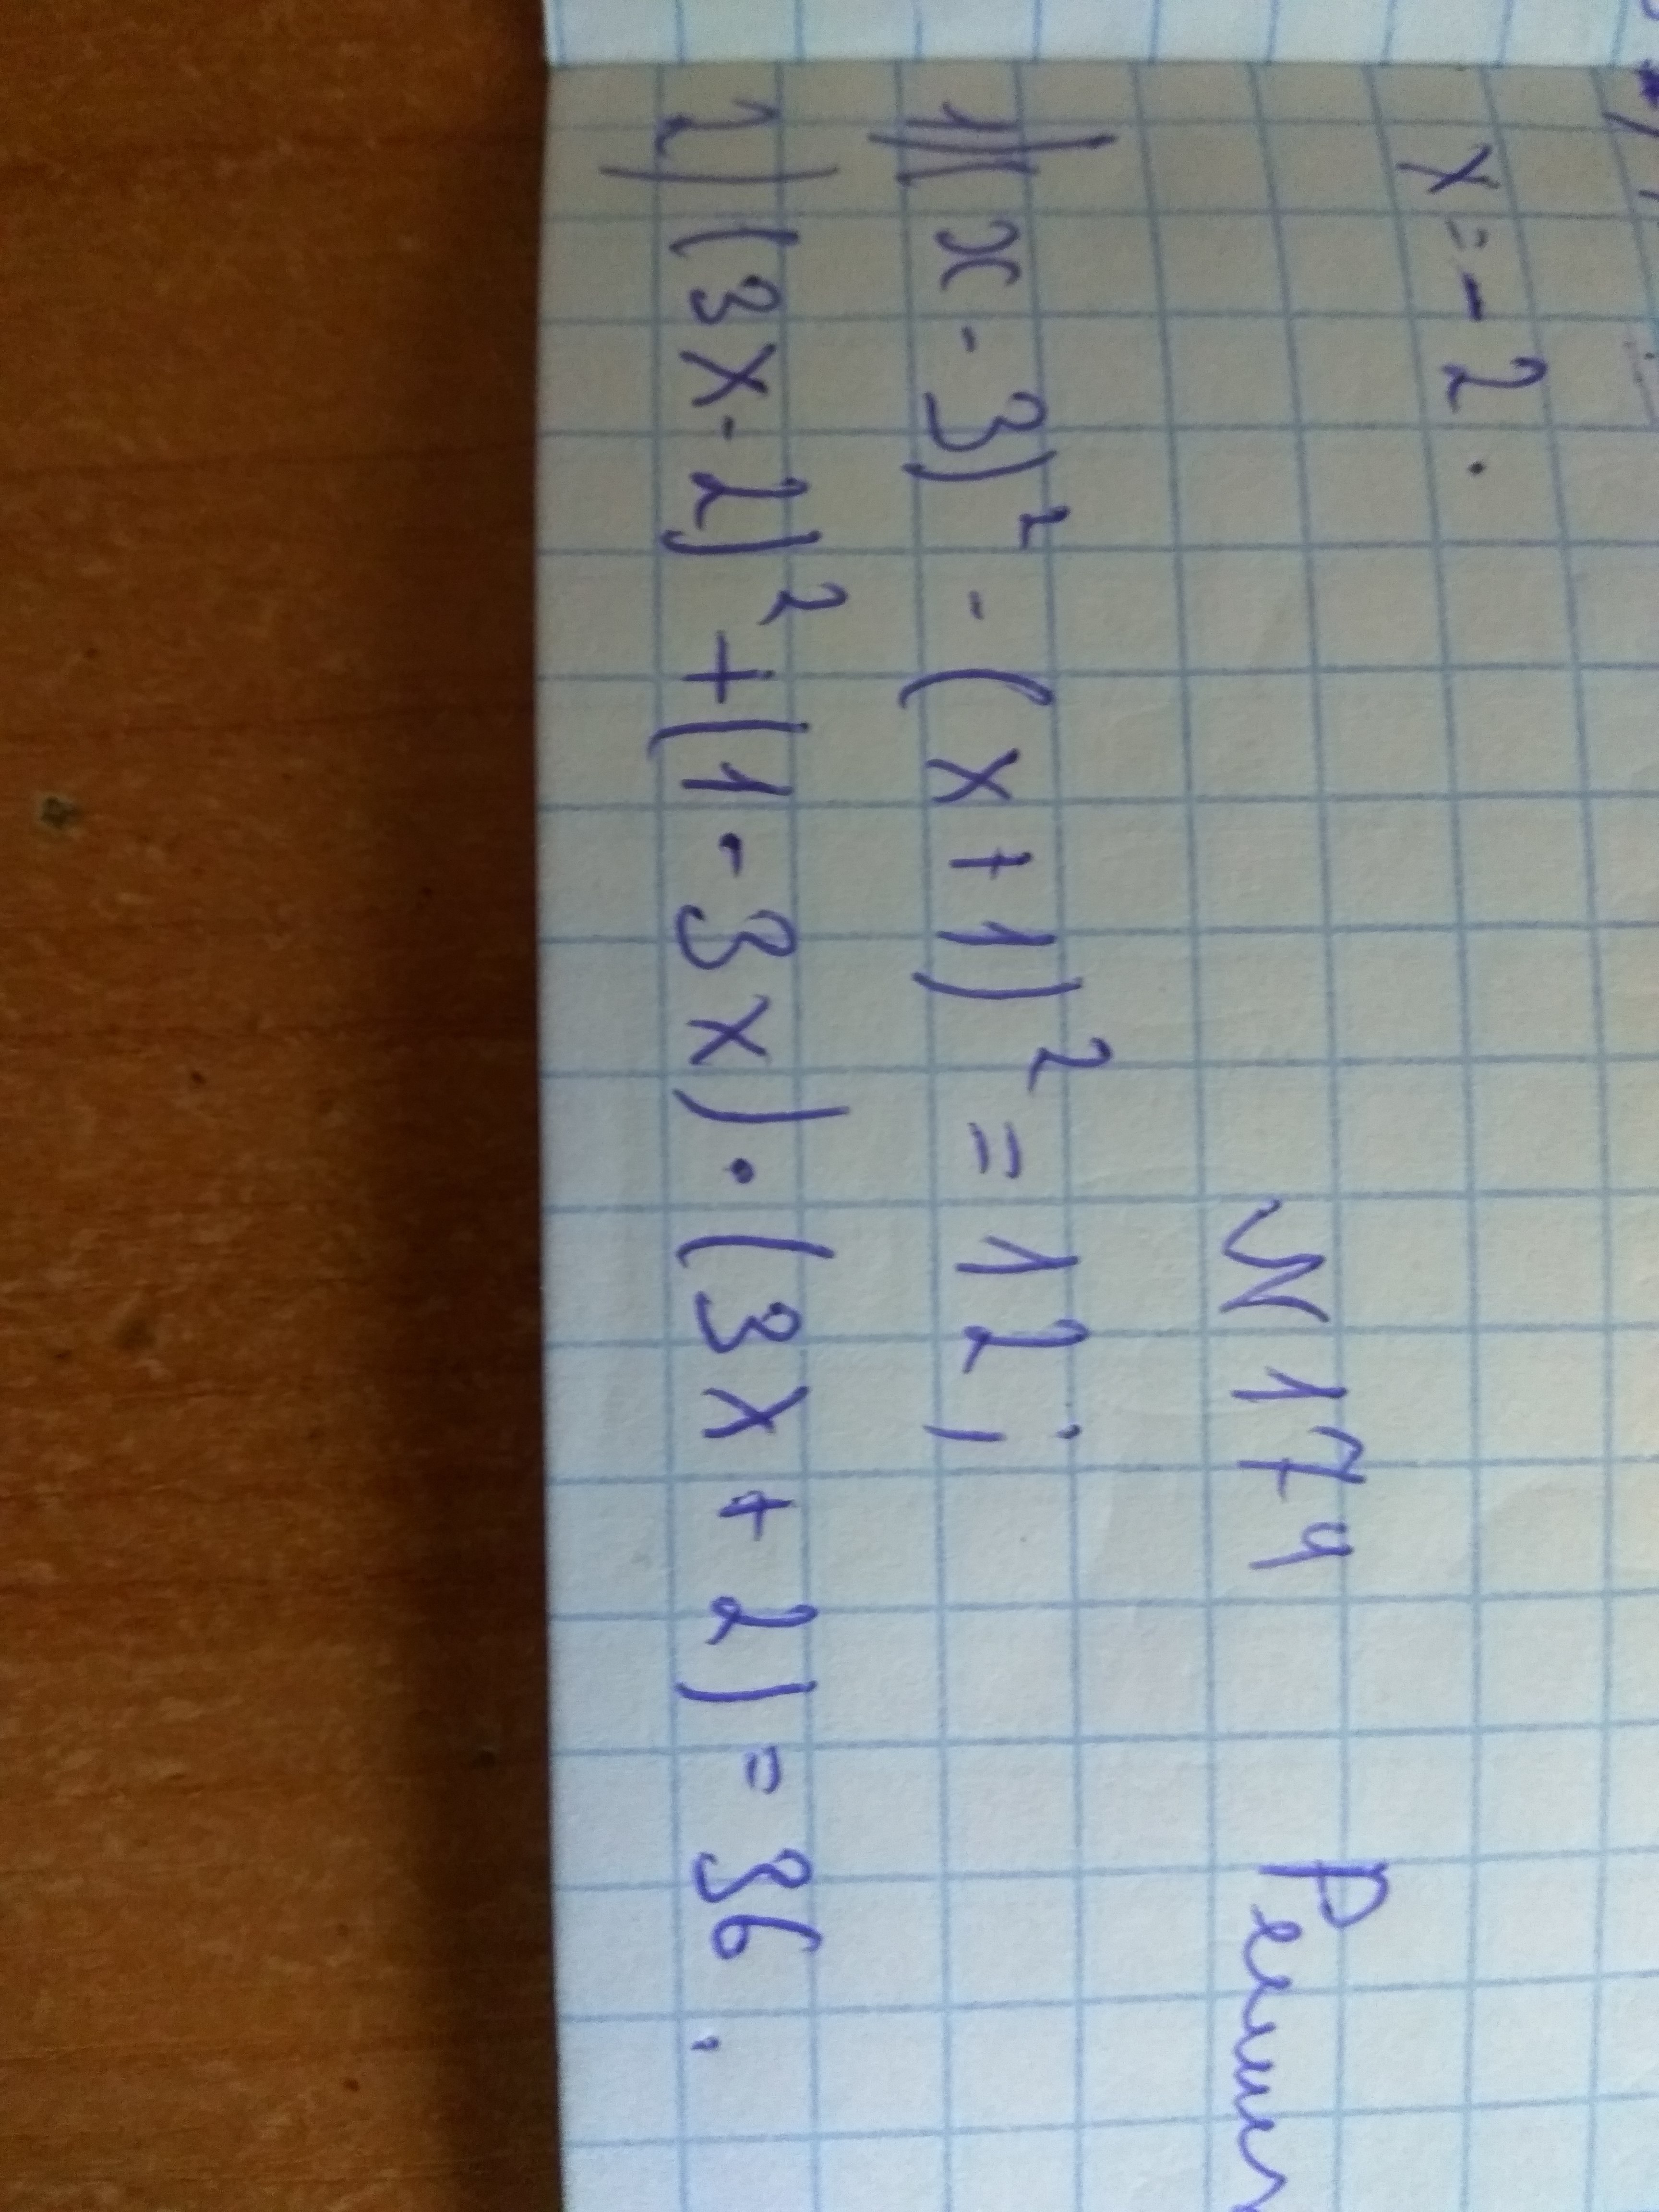 x = - 2 .
N 174 Решит
1) (x - 3)² - (x + 1)² = 12 ;
2) (3x - 2)² + (1 - 3x) · (3x + 2) = 36 .